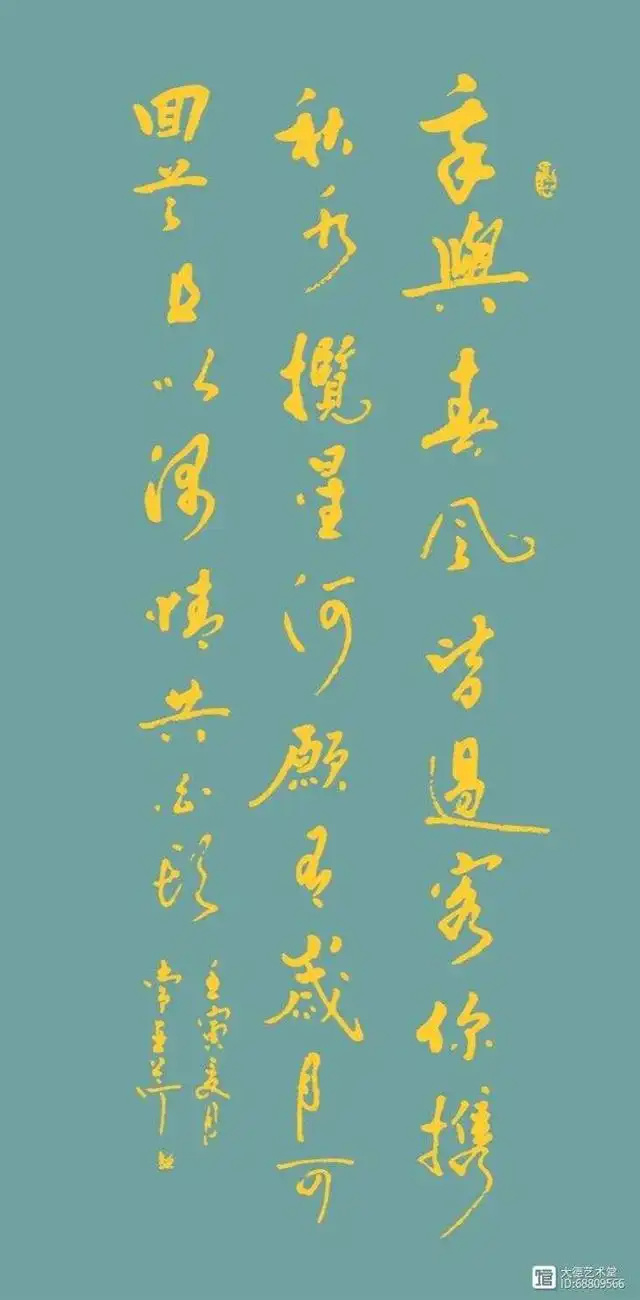 與春风皆過客你携
秋水攬星河願有歲月可
回首且以深情共白頭
壬寅夏月
常
大德艺术堂
ID:68809566